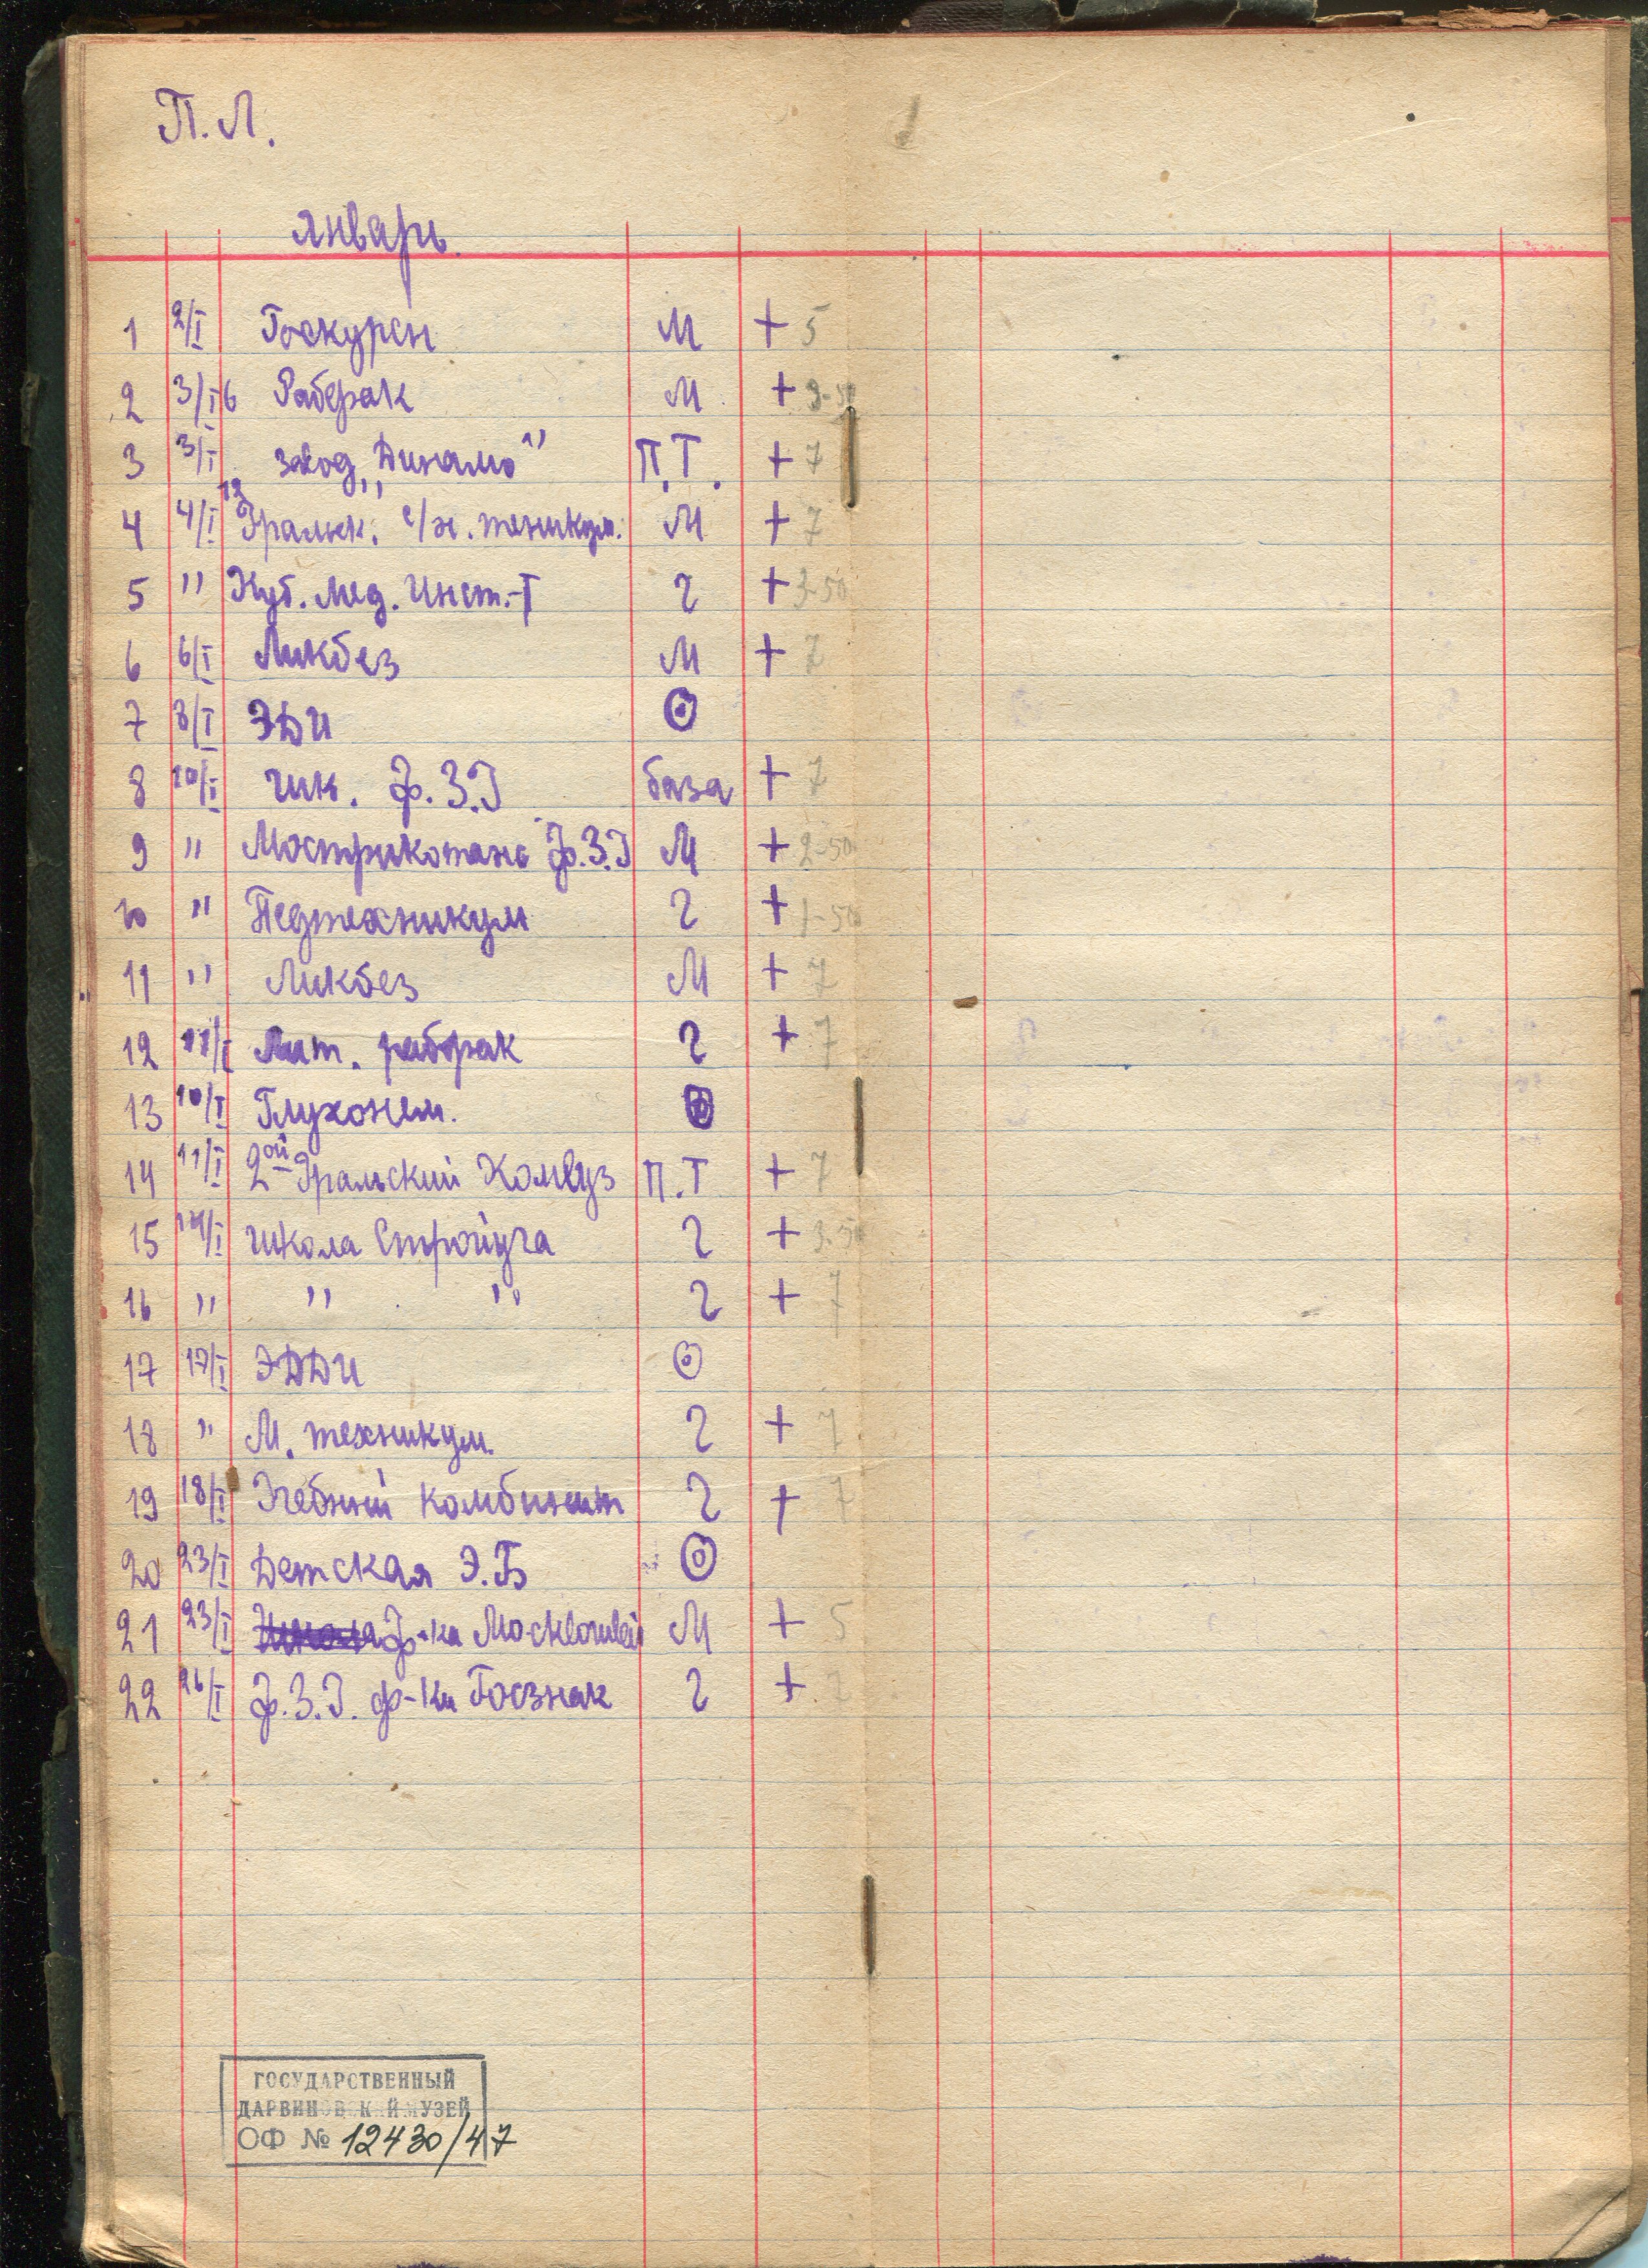 П.Л.
Январь.
1 2/I Госкурсы М + 5
2 3/I 6 Рабфак М + 3-50
3 3/I завод „Динамо" П.Т. + 7
4 4/I 12 Уральск. с/х. техникум. М + 7
5 " Куб. Мед. Инст.-т Г + 3-50
6 6/I Ликбез М + 7
7 8/I ЭДИ ⊙
8 10/I шк. Ф.З.У база + 7
9 " Мострикотаж Ф.З.У М + 2-50
10 " Педтехникум Г + 1-50
11 " Ликбез М + 7
12 11/I Лит. рабфак Г + 7
13 10/I Глухонем. ⊙
14 11/I 2ой Уральский Комвуз П.Т + 7
15 14/I школа Стройуча Г + 3-50
16 " " " Г + 7
17 17/I ЭДДИ ⊙
18 " М. техникум. Г + 7
19 18/I Учебный комбинат Г + 7
20 23/I Детская Э.Б ⊙
21 23/I ф-ки Москвошвей М + 5
22 26/I Ф.З.У. ф-ки Госзнак Г +
ГОСУДАРСТВЕННЫЙ
ДАРВИНОВСКИЙ МУЗЕЙ
ОФ № 12430/47